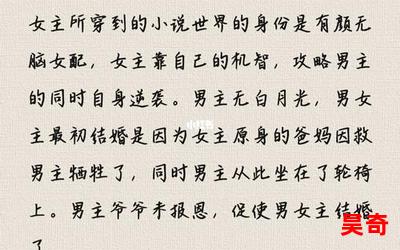 女主所穿到的小说世界的身份是有颜无
脑女配，女主靠自己的机智，攻略男主
的同时自身逆袭。男主无白月光，男女
小红书
主最初结婚是因为女主原身的爸妈因救
男主牺牲了，同时男主从此坐在了轮椅
上。男主爷爷未报恩，促使男女主结婚
了
昊奇